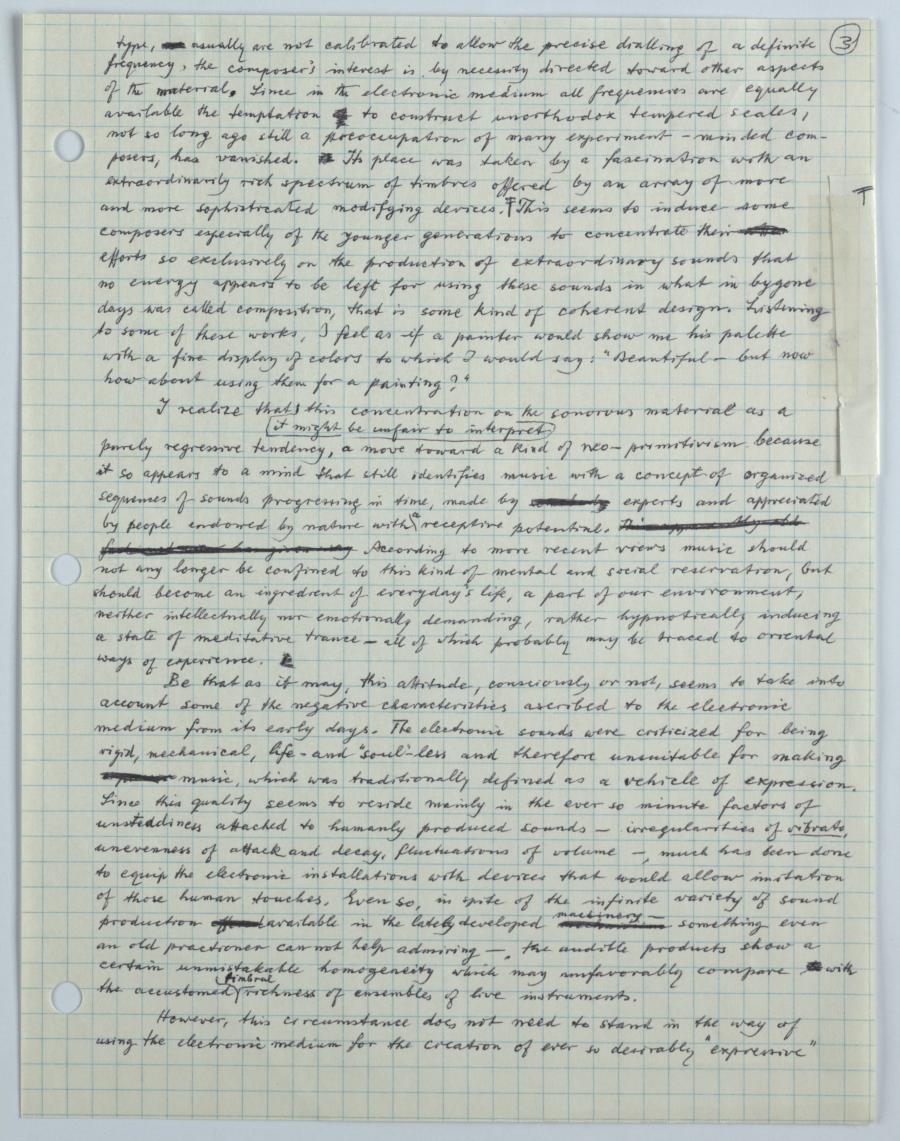 3
type, usually are not calibrated to allow the precise dialling of a definite
frequency, the composer's interest is by necessity directed toward other aspects
of the material. Since in the electronic medium all frequencies are equally
available the temptation to construct unorthodox tempered scales,
not so long ago still a preoccupation of many experiment-minded com-
posers, has vanished. Its place was taken by a fascination with an
extraordinarily rich spectrum of timbres offered by an array of more
and more sophisticated modifying devices. This seems to induce some
composers especially of the younger generations to concentrate their
efforts so exclusively on the production of extraordinary sounds that
no energy appears to be left for using these sounds in what in bygone
days was called composition, that is some kind of coherent design. Listening
to some of these works, I feel as if a painter would show me his palette
with a fine display of colors to which I would say: "Beautiful - but now
how about using them for a painting?"
I realize that this concentration on the sonorous material as a
it might be unfair to interpret
purely regressive tendency, a move toward a kind of neo-primitivism because
it so appears to a mind that still identifies music with a concept of organized
sequences of sounds progressing in time, made by experts and appreciated
by people endowed by nature with a receptive potential.
According to more recent views music should
not any longer be confined to this kind of mental and social reservation, but
should become an ingredient of everyday's life, a part of our environment,
neither intellectually nor emotionally demanding, rather hypnotically inducing
a state of meditative trance - all of which probably may be traced to oriental
ways of experience.
Be that as it may, this attitude, consciously or not, seems to take into
account some of the negative characteristics ascribed to the electronic
medium from its early days. The electronic sounds were criticized for being
rigid, mechanical, life- and "soul"-less and therefore unsuitable for making
music, which was traditionally defined as a vehicle of expression.
Since this quality seems to reside mainly in the ever so minute factors of
unsteadiness attached to humanly produced sounds - irregularities of vibrato,
unevenness of attack and decay, fluctuations of volume -, much has been done
to equip the electronic installations with devices that would allow imitation
of those human touches. Even so, in spite of the infinite variety of sound
production available in the lately developed machinery - something even
an old practioner can not help admiring -, the audible products show a
certain unmistakable homogeneity which may unfavorably compare with
the accustomed timbral richness of ensembles of live instruments.
However, this circumstance does not need to stand in the way of
using the electronic medium for the creation of ever so desirably "expressive"